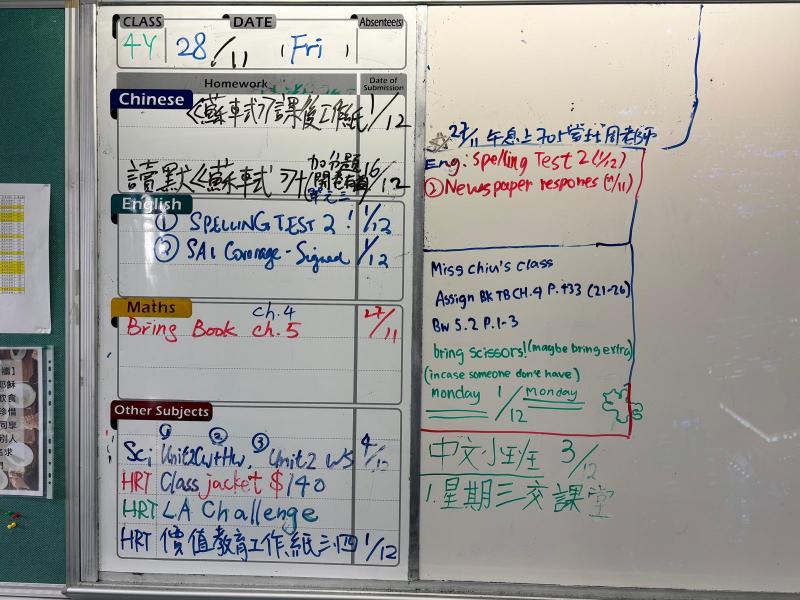 CLASS DATE Absentees
4Y 28/11 (Fri)
Homework Date of Submission
Chinese
《蘇軾》課後工作紙 1/12
讀默《蘇軾》 16/12
加分題
單元三
English
① SPELLING TEST 2! 1/12
② SA1 Coverage - Signed 1/12
Maths
ch.4
Bring Book ch.5 27/11
Other Subjects
① ② ③
Sci Unit2 CW+HW, Unit2 WS 4/12
HRT Class jacket $140
HRT LA Challenge
HRT 價值教育工作紙三、四 1/12
27/11 午息上 周老師
Eng: Spelling Test 2 (1/12)
② Newspaper respones
Miss chiu's class
Assign BK TB CH.4 P.433 (21-26)
BW 5.2 P.1-3
bring scissors! (maybe bring extra)
(incase someone don't have)
monday 1/12 monday
中文小班 3/12
1. 星期三交課堂